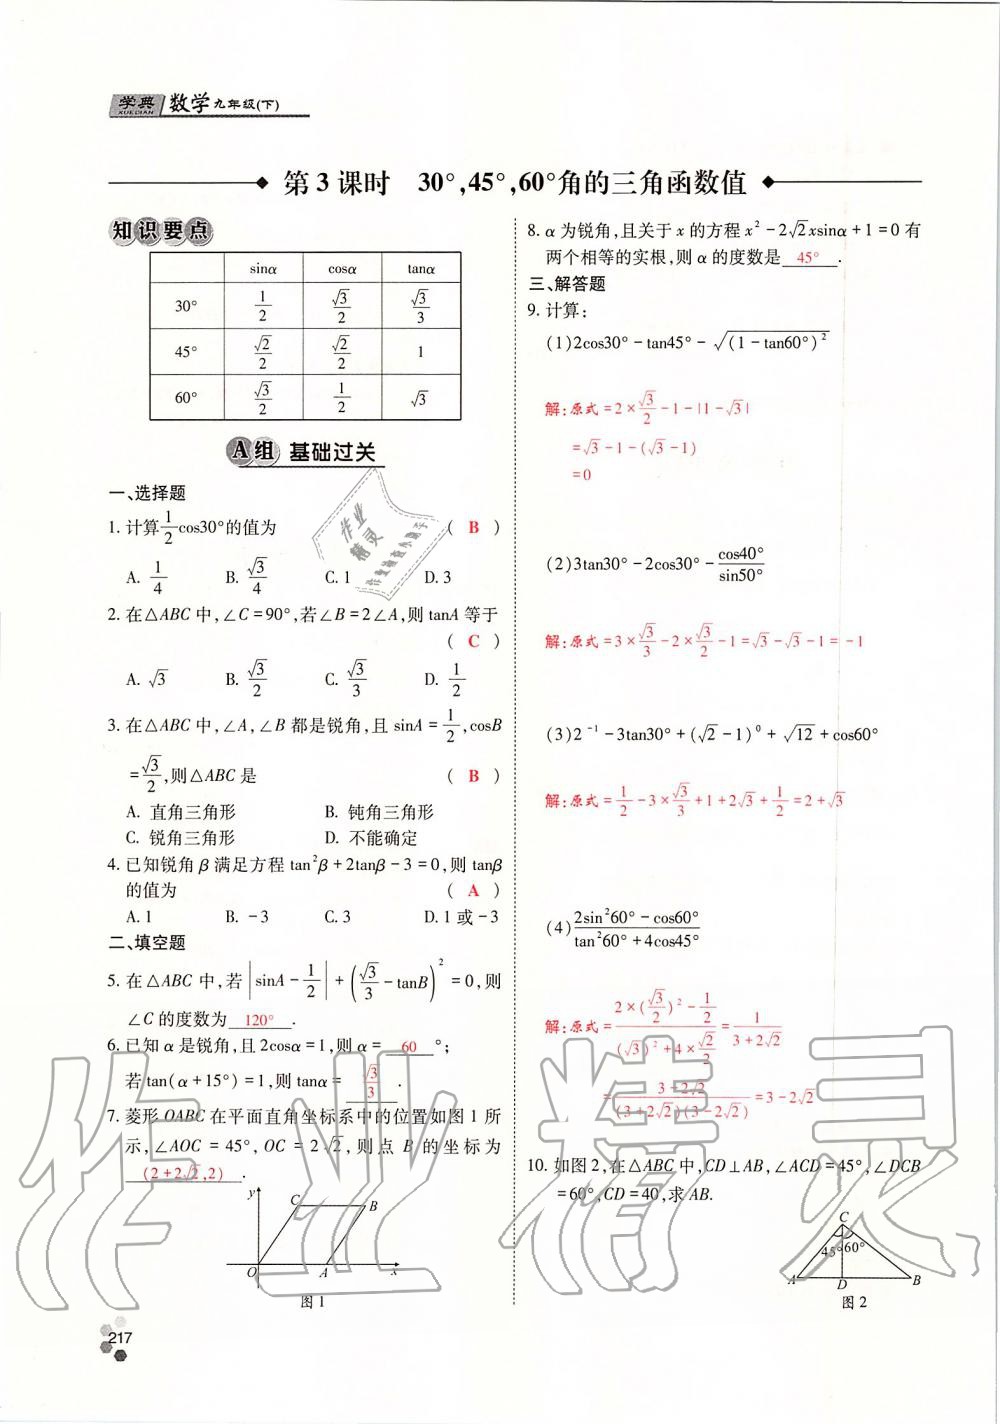 学典 数学 九年级(下)
XUEDIAN
第3课时　30°,45°,60°角的三角函数值
知识要点
sinα cosα tanα
30° 1/2 √3/2 √3/3
45° √2/2 √2/2 1
60° √3/2 1/2 √3
A组 基础过关
一、选择题
1. 计算1/2cos30°的值为 ( B )
A. 1/4 B. √3/4 C. 1 D. 3
2. 在△ABC中,∠C=90°,若∠B=2∠A,则tanA等于
( C )
A. √3 B. √3/2 C. √3/3 D. 1/2
3. 在△ABC中,∠A,∠B都是锐角,且sinA=1/2,cosB
=√3/2,则△ABC是 ( B )
A. 直角三角形 B. 钝角三角形
C. 锐角三角形 D. 不能确定
4. 已知锐角β满足方程tan²β+2tanβ-3=0,则tanβ
的值为 ( A )
A. 1 B. -3 C. 3 D. 1或-3
二、填空题
5. 在△ABC中,若|sinA-1/2|+(√3/3-tanB)²=0,则
∠C的度数为 120° .
6. 已知α是锐角,且2cosα=1,则α= 60 °;
若tan(α+15°)=1,则tanα= √3/3 .
7. 菱形OABC在平面直角坐标系中的位置如图1所
示,∠AOC=45°,OC=2√2,则点B的坐标为
(2+2√2,2) .
y C B
O A x
图1
217
8. α为锐角,且关于x的方程x²-2√2xsinα+1=0有
两个相等的实根,则α的度数是 45° .
三、解答题
9. 计算:
(1)2cos30°-tan45°-√((1-tan60°)²)
解:原式=2×√3/2-1-|1-√3|
=√3-1-(√3-1)
=0
(2)3tan30°-2cos30°-cos40°/sin50°
解:原式=3×√3/3-2×√3/2-1=√3-√3-1=-1
(3)2⁻¹-3tan30°+(√2-1)⁰+√12+cos60°
解:原式=1/2-3×√3/3+1+2√3+1/2=2+√3
(4)(2sin²60°-cos60°)/(tan²60°+4cos45°)
解:原式=(2×(√3/2)²-1/2)/((√3)²+4×√2/2)=1/(3+2√2)
=(3-2√2)/((3+2√2)(3-2√2))=3-2√2
10. 如图2,在△ABC中,CD⊥AB,∠ACD=45°,∠DCB
=60°,CD=40,求AB.
C
45° 60°
A D B
图2
作业精灵